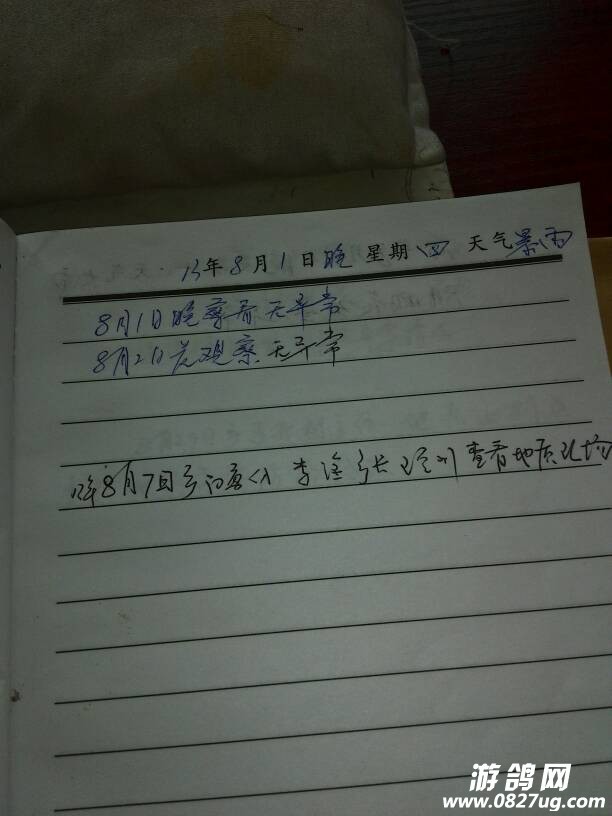 13年8月1日晚 星期四 天气暴雨
8月1日晚察看无异常
8月2日 观察无异常
8月7日 李 乡长 查看地质现场
游鸽网
www.0827ug.com